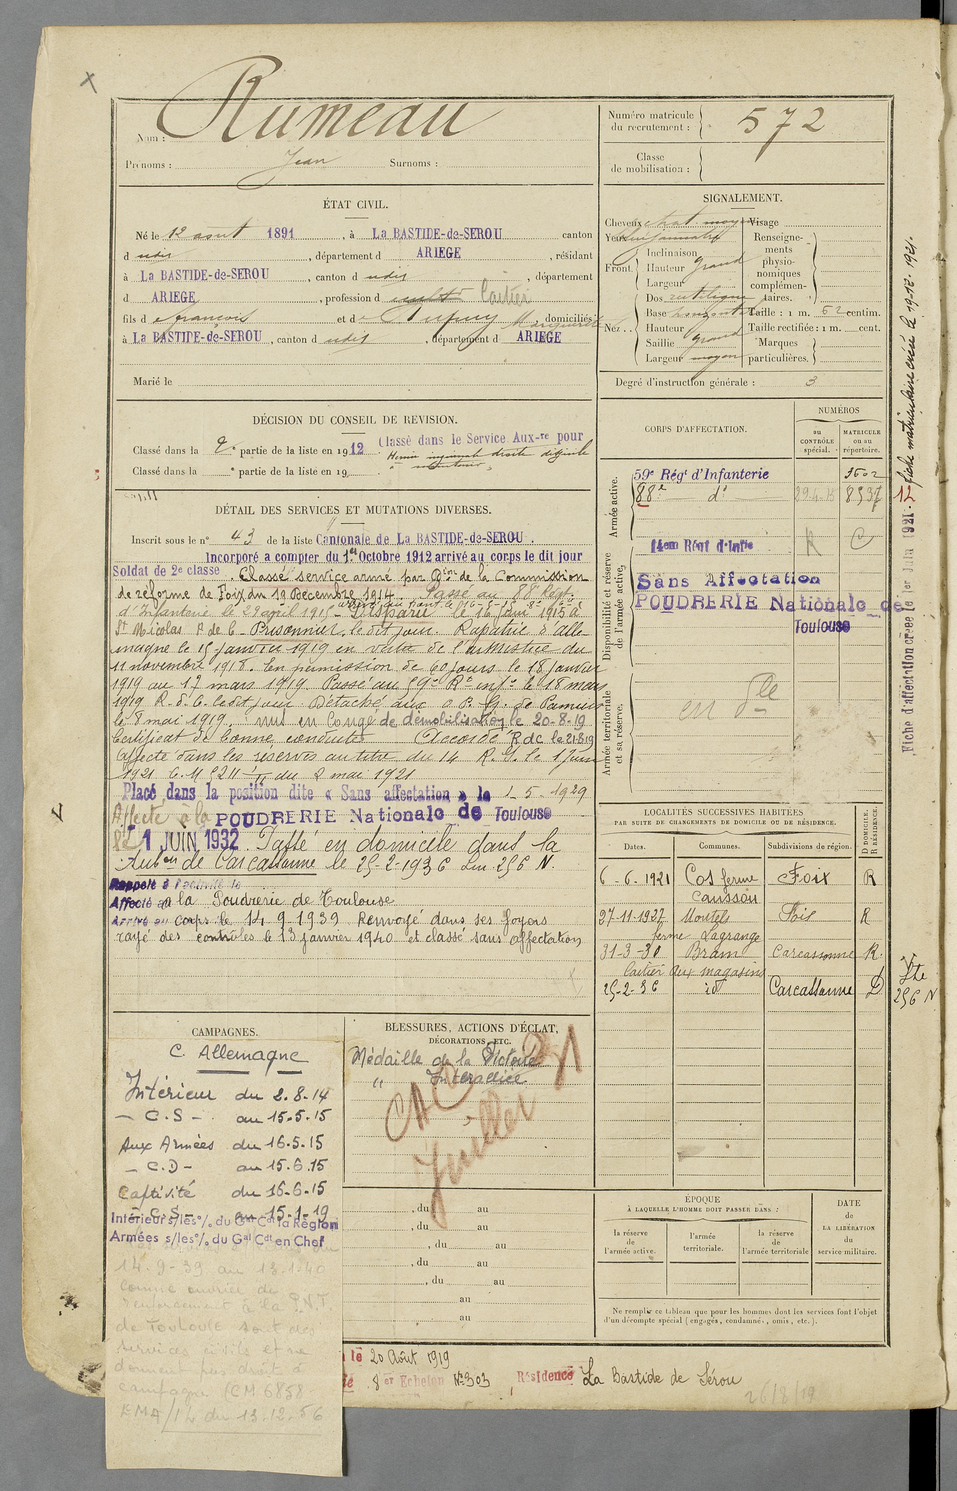 Nom : Rumeau
Prénoms : Jean Surnoms :
Numéro matricule du recrutement : 572
Classe de mobilisation :
ÉTAT CIVIL.
Né le 12 aout 1891, à La BASTIDE-de-SEROU canton
d udit, département d ARIEGE, résidant
à La BASTIDE-de-SEROU, canton d udit, département
d ARIEGE, profession d cult Laitier
fils d e françois et d e Dupuy Marguerite, domiciliés
à La BASTIDE-de-SEROU, canton d udit, département d ARIEGE
Marié le
SIGNALEMENT.
Cheveux chat. moy Visage
Yeux
Front Inclinaison
Hauteur grand
Largeur
Nez Dos rectiligne
Base horizontale
Hauteur
Saillie grand
Largeur moyen
Renseignements physionomiques complémentaires.
Taille : 1 m. 62 centim.
Taille rectifiée : 1 m. cent.
Marques particulières.
Degré d'instruction générale : 3
DÉCISION DU CONSEIL DE REVISION.
Classé dans la 2e partie de la liste en 1912 Classé dans le Service Aux-re pour
Hernie inguinale droite
Classé dans la e partie de la liste en 19
DÉTAIL DES SERVICES ET MUTATIONS DIVERSES.
Inscrit sous le n° 43 de la liste Cantonale de La BASTIDE-de-SEROU.
Incorporé a compter du 1er Octobre 1912 arrivé au corps le dit jour
Soldat de 2e classe. Classé service armé par Don de la Commission
de réforme de Foix du 19 Decembre 1914. Passé au 88e Regt
d'Infanterie le 29 avril 1915 Disparu le 16 Juin 1915 à
St Nicolas P de C - Prisonnier le dit jour. Rapatrié d'Alle-
magne le 15 janvier 1919 en vertu de l'armistice du
11 novembre 1918. En permission de 60 jours le 18 janvier
1919 au 17 mars 1919. Passé au 59e Rt infie le 18 mars
1919 R. d. C. le dit jour. Détaché aux P. G. de Pamiers
le 8 mai 1919. mis en Congé de démobilisation le 20-8-19
Certificat de bonne conduite Accordé R dc le 21-8-19
affecté dans les réserves au titre du 14 R. I. le 1 juin
1921 C. M 5211 1/11 du 2 mai 1921
Placé dans la position dite « Sans affectation » le 1-5-1929
Affecté à la POUDRERIE Nationale de Toulouse
le 1 JUIN 1932 Passé en domicile dans la
Subon de Carcassonne le 25-2-1936 Lm 256 N
Rappelé à l'activité le
Affecté à la Poudrerie de Toulouse
Arrivé au corps le 14-9-1939 Renvoyé dans ses foyers
rayé des contrôles le 13 janvier 1940 et classé sans affectation
CORPS D'AFFECTATION.
NUMÉROS
au CONTRÔLE spécial.
MATRICULE ou au répertoire.
Armée active.
59e Régt d'Infanterie 3602
88e do 8537
Disponibilité et réserve de l'armée active.
14em Régt d'Infie
Sans Affectation
POUDRERIE Nationale de
Toulouse
Armée territoriale et sa réserve.
en Dle
Fiche d'affectation créée le 1er Juin 1921. fiche matriculaire créée le 19.12.1921.
LOCALITÉS SUCCESSIVES HABITÉES
PAR SUITE DE CHANGEMENTS DE DOMICILE OU DE RÉSIDENCE.
Dates. Communes. Subdivisions de région. D DOMICILE. R RÉSIDENCE.
6-6-1921 Cos ferme Caussou Foix R
27-11-1927 Montels ferme Lagrange Foix R
31-3-30 Bram Carcassonne R.
Laitier aux magasins
25-2-36 id Carcassonne D
256 N
CAMPAGNES.
C. Allemagne
Intérieur du 2-8-14
- C.S - au 15-5-15
Aux Armées du 16-5-15
- C.D - au 15-6-15
Captivité du 16-6-15
- C.S - au 15-1-19
Intérieur s/les % du Gal Ct la Région
Armées s/les % du Gal Cdt en Chef
14-9-39 au 13-1-40
comme ouvrier de
renforcement à la P.N.T
de Toulouse sont des
services civils et ne
donnent pas droit à
campagne (CM 6858
EMA/1L du 13-12-56
BLESSURES, ACTIONS D'ÉCLAT, DÉCORATIONS, ETC.
Médaille de la Victoire
" Interalliée
CAC
Juillet 31
, du au
, du au
, du au
, du au
, du au
au
au
ÉPOQUE
À LAQUELLE L'HOMME DOIT PASSER DANS :
la réserve de l'armée active.
l'armée territoriale.
la réserve de l'armée territoriale
DATE de LA LIBÉRATION du service militaire.
Ne remplir ce tableau que pour les hommes dont les services font l'objet
d'un décompte spécial (engagés, condamnés, omis, etc.).
le 20 Août 1919
8er Echelon No 303 Résidence La Bastide de Sérou
26/8/19